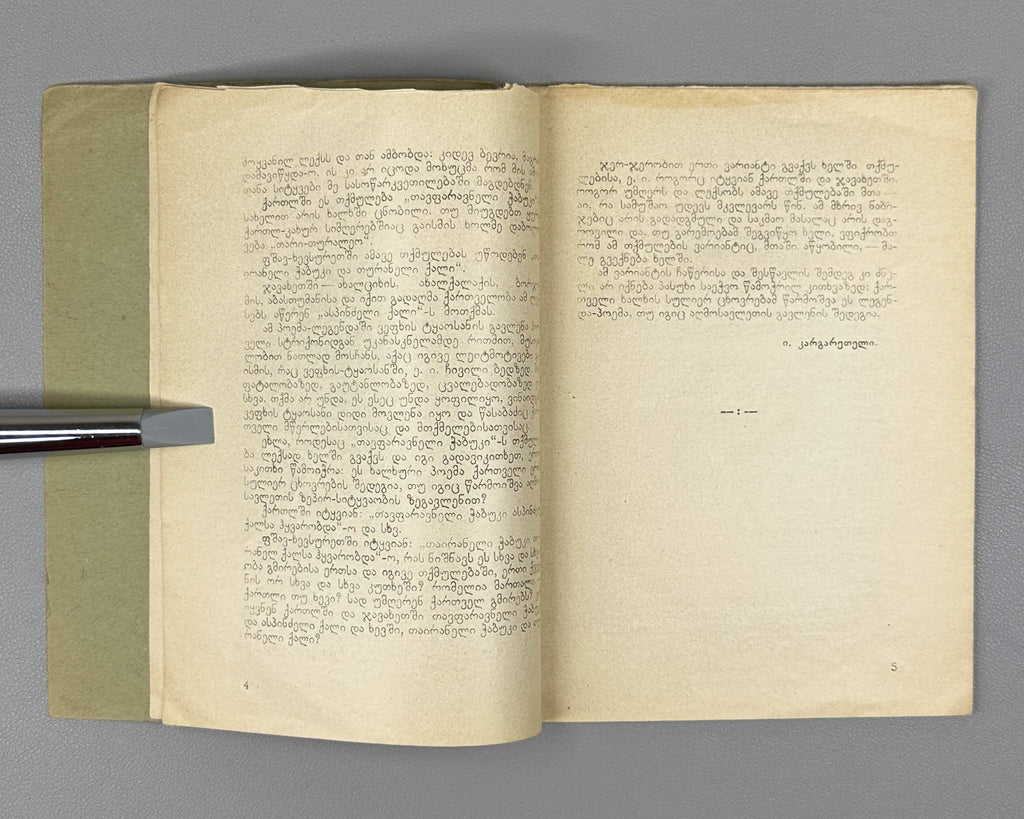 მოყვანილ ლექსს და თან ამბობდა: კიდევ ბევრია,
დამავიწყდა-ო. ის კი არ იცოდა მოხუცმა რომ მის
თანა სიტყვები მე სასოწარკვეთილებაში მაგდებდნენ.
ქართლში ეს თქმულება „თავფარავნელი ჭაბუკი“
სახელით არის ხალხში ცნობილი. თუ მიუგდებთ
ქართლ-კახურ სიმღერებშიაც გაისმის ხოლმე
ვება „თარი-თურალეო“.
ფშავ-ხევსურეთში ამავე თქმულებას უწოდებენ
ირანელი ჭაბუკი და თურანელი ქალი“.
ჯავახეთში — ახალციხის, ახალქალაქის,
მის, აბასთუმანისა და იქით გადაღმა ქართველობა ამ
სებს აწერენ „ასპინძელი ქალი“-ს მოთქმას.
ამ პოემა-ლეგენდაში ვეფხის ტყაოსანის გავლენა
ველი სტრიქონიდგან უკანასკნელამდე რითმით,
ლობით ნათლად მოსჩანს, აქაც იგივე ლეიტმოტივები
ისმის, რაც ვეფხის-ტყაოსანში, ე. ი. ჩივილი ბედზედ,
ფატალობაზედ, გაუტანლობაზედ, ცვალებადობაზედ
სხვა. თქმა არ უნდა, ეს ესეც უნდა ყოფილიყო,
ვეფხის ტყაოსანი დიდი მოვლენა იყო და წასაბაძიც
თველი მწერლებისათვისაც და მთქმელებისათვისაც.
ეხლა, როდესაც „თავფარავნელი ჭაბუკი“-ს
ბა ლექსად ხელში გვაქვს და იგი გადავიკითხეთ,
საკითხი წამოიჭრა: ეს ხალხური პოემა ქართველი
სულიერ ცხოვრების შედეგია, თუ იგიც წარმოიშვა
სავლეთის ზეპირ-სიტყვაობის ზეგავლენით?
ქართლში იტყვიან: „თავფარავნელი ჭაბუკი
ქალსა ჰყვარობდა“-ო და სხვ.
ფშავ-ხევსურეთში იტყვიან: „თაირანელი ჭაბუკი
რანელ ქალსა ჰყვარობდა“-ო, რას ნიშნავს ეს სხვა და
ობა გმირებისა ერთსა და იგივე თქმულებაში, ერთი
ნის ორ სხვა და სხვა კუთხეში? რომელია
ქართლი თუ ხევი? სად უმღერენ ქართველ გმირებს?
იყვნენ ქართლში და ჯავახეთში თავფარავნელი
და ასპინძელი ქალი და ხევში, თაირანელი ჭაბუკი და
რანელი ქალი?
4
ჯერ-ჯერობით ერთი ვარიანტი გვაქვს ხელში თქმუ-
ლებისა, ე. ი. როგორც იტყვიან ქართლში და ჯავახეთში.
როგორ უმღერს და ლექსობს ამავე თქმულებაში მთა —
აი, რა სამუშაო უდევს მკვლევარს წინ. ამ მხრივ ნაბი-
ჯებიც არის გადადგმული და საკმაო მასალაც არის დაგ-
როვილი და, თუ გარემოებამ შეგვიწყო ხელი, ვფიქრობთ
რომ ამ თქმულების ვარიანტიც, მთაში აწყობილი, — მა-
ლე გვექნება ხელში.
ამ ვარიანტის ჩაწერისა და შესწავლის შემდეგ კი ძნე-
ლი არ იქნება პასუხი საეჭვო წამოჭრილ კითხვაზედ: ქარ-
თველი ხალხის სულიერ ცხოვრებამ წარმოშვა ეს ლეგენ-
და-პოემა, თუ იგიც აღმოსავლეთის გავლენის შედეგია.
ი. კარგარეთელი.
—:—
5